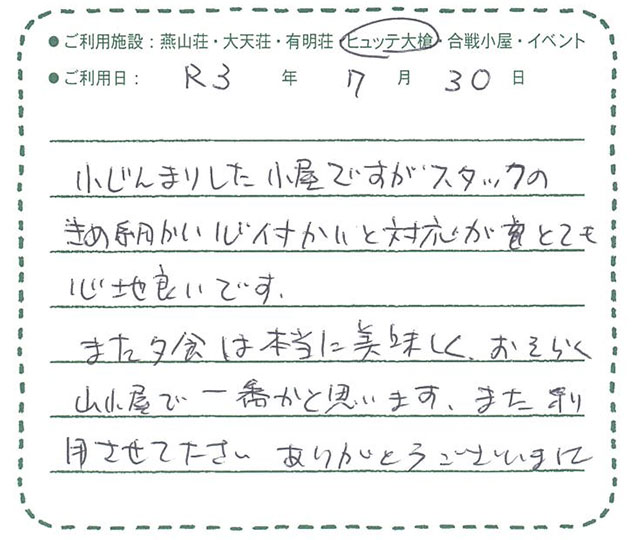 ●ご利用施設：燕山荘・大天荘・有明荘・ヒュッテ大槍・合戦小屋・イベント
●ご利用日： R3 年 7 月 30 日
小じんまりした小屋ですがスタッフの
きめ細かい心付かいと対応がとても
心地良いです.
また夕食は本当に美味しく、おそらく
山小屋で一番かと思います、また利
用させて下さい ありがとうございました